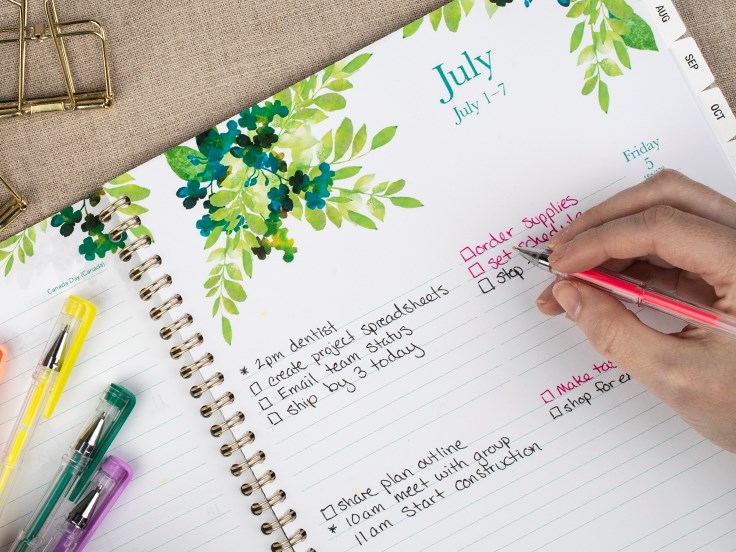 AUG
SEP
OCT
July
July 1–7
Friday
5
Canada Day (Canada)
order supplies
set schedule
stop
* 2pm dentist
create project spreadsheets
Email team status
ship by 3 today
Make
shop for
share plan outline
* 10am meet with group
11am start construction